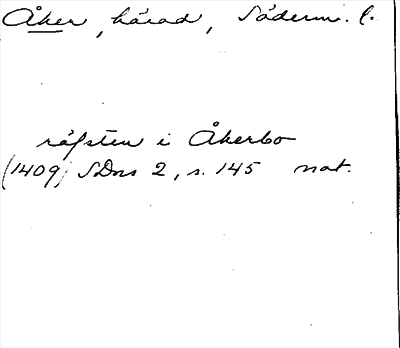 Åker, härad, Söderm. l.
räfsten i Åkerbo
(1409) SDns 2, s. 145 not.